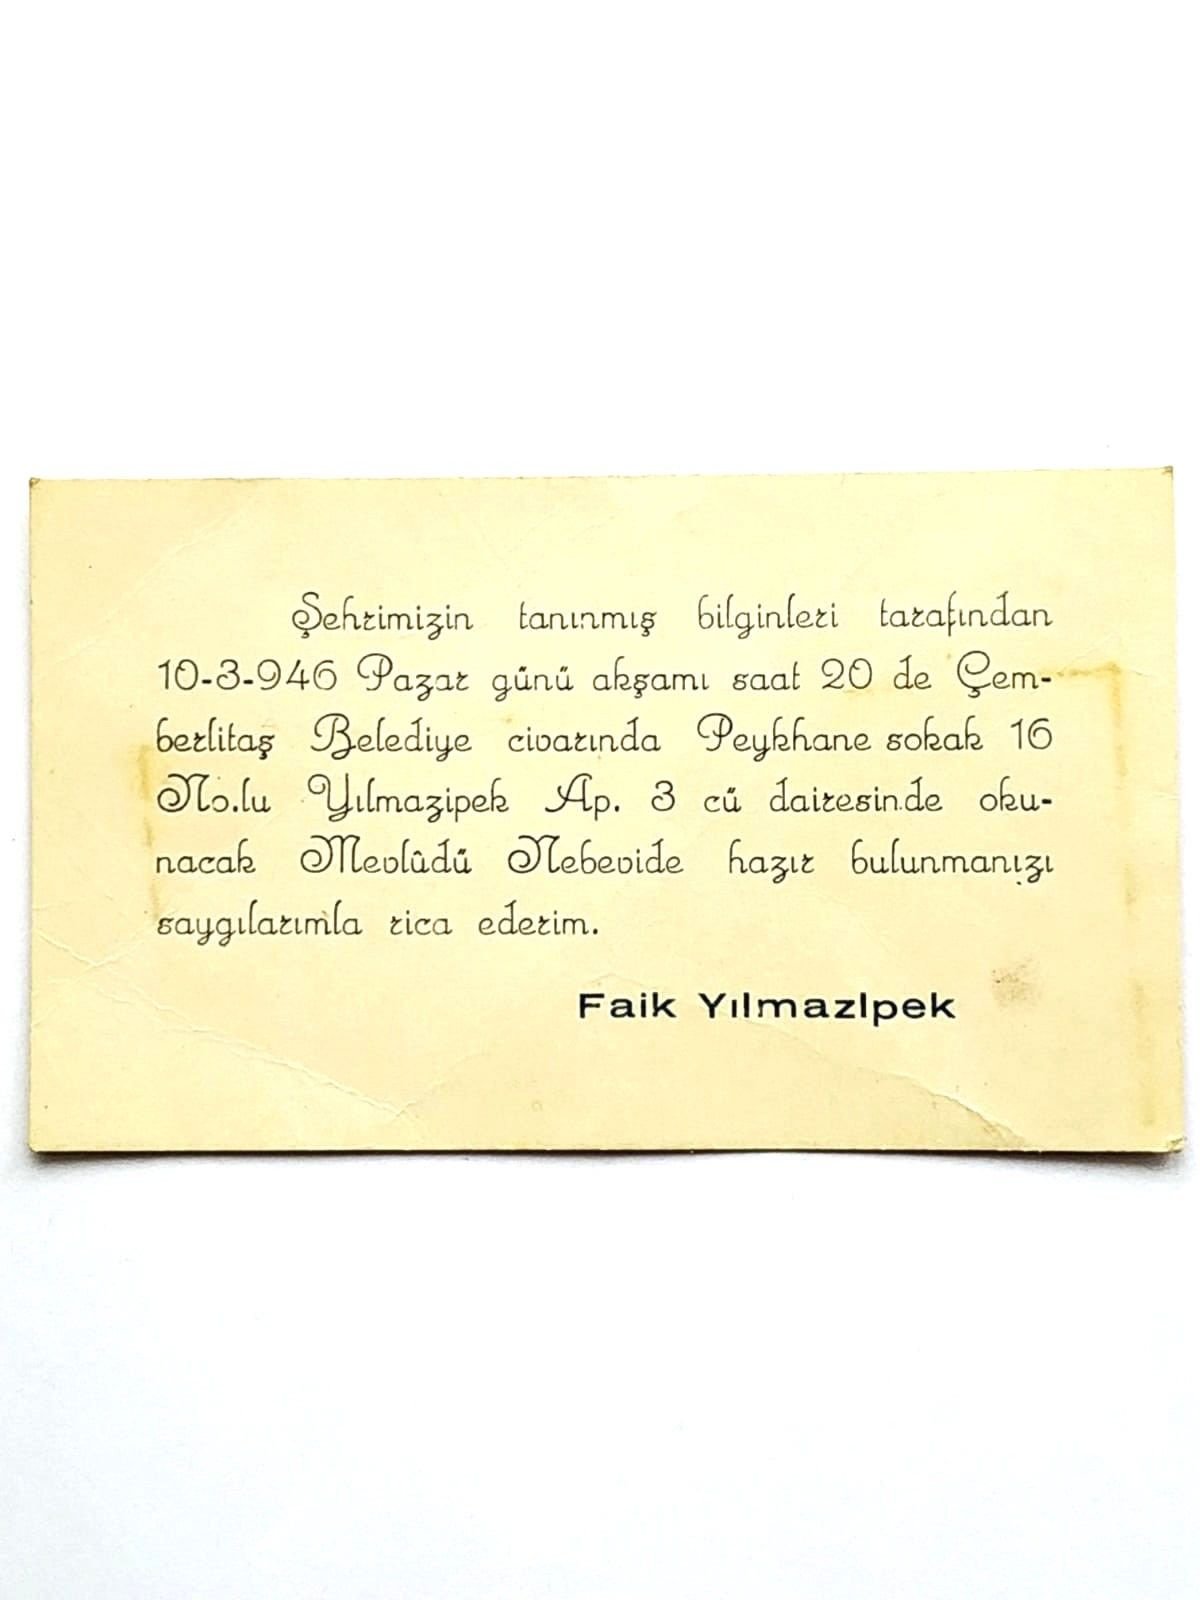 Şehrimizin tanınmış bilginleri tarafından
10-3-946 Pazar günü akşamı saat 20 de Çem-
berlitaş Belediye civarında Peykhane sokak 16
No.lu Yılmazipek Ap. 3 cü dairesinde oku-
nacak Mevlûdü Nebevide hazır bulunmanızı
saygılarımla rica ederim.
Faik YılmazIpek